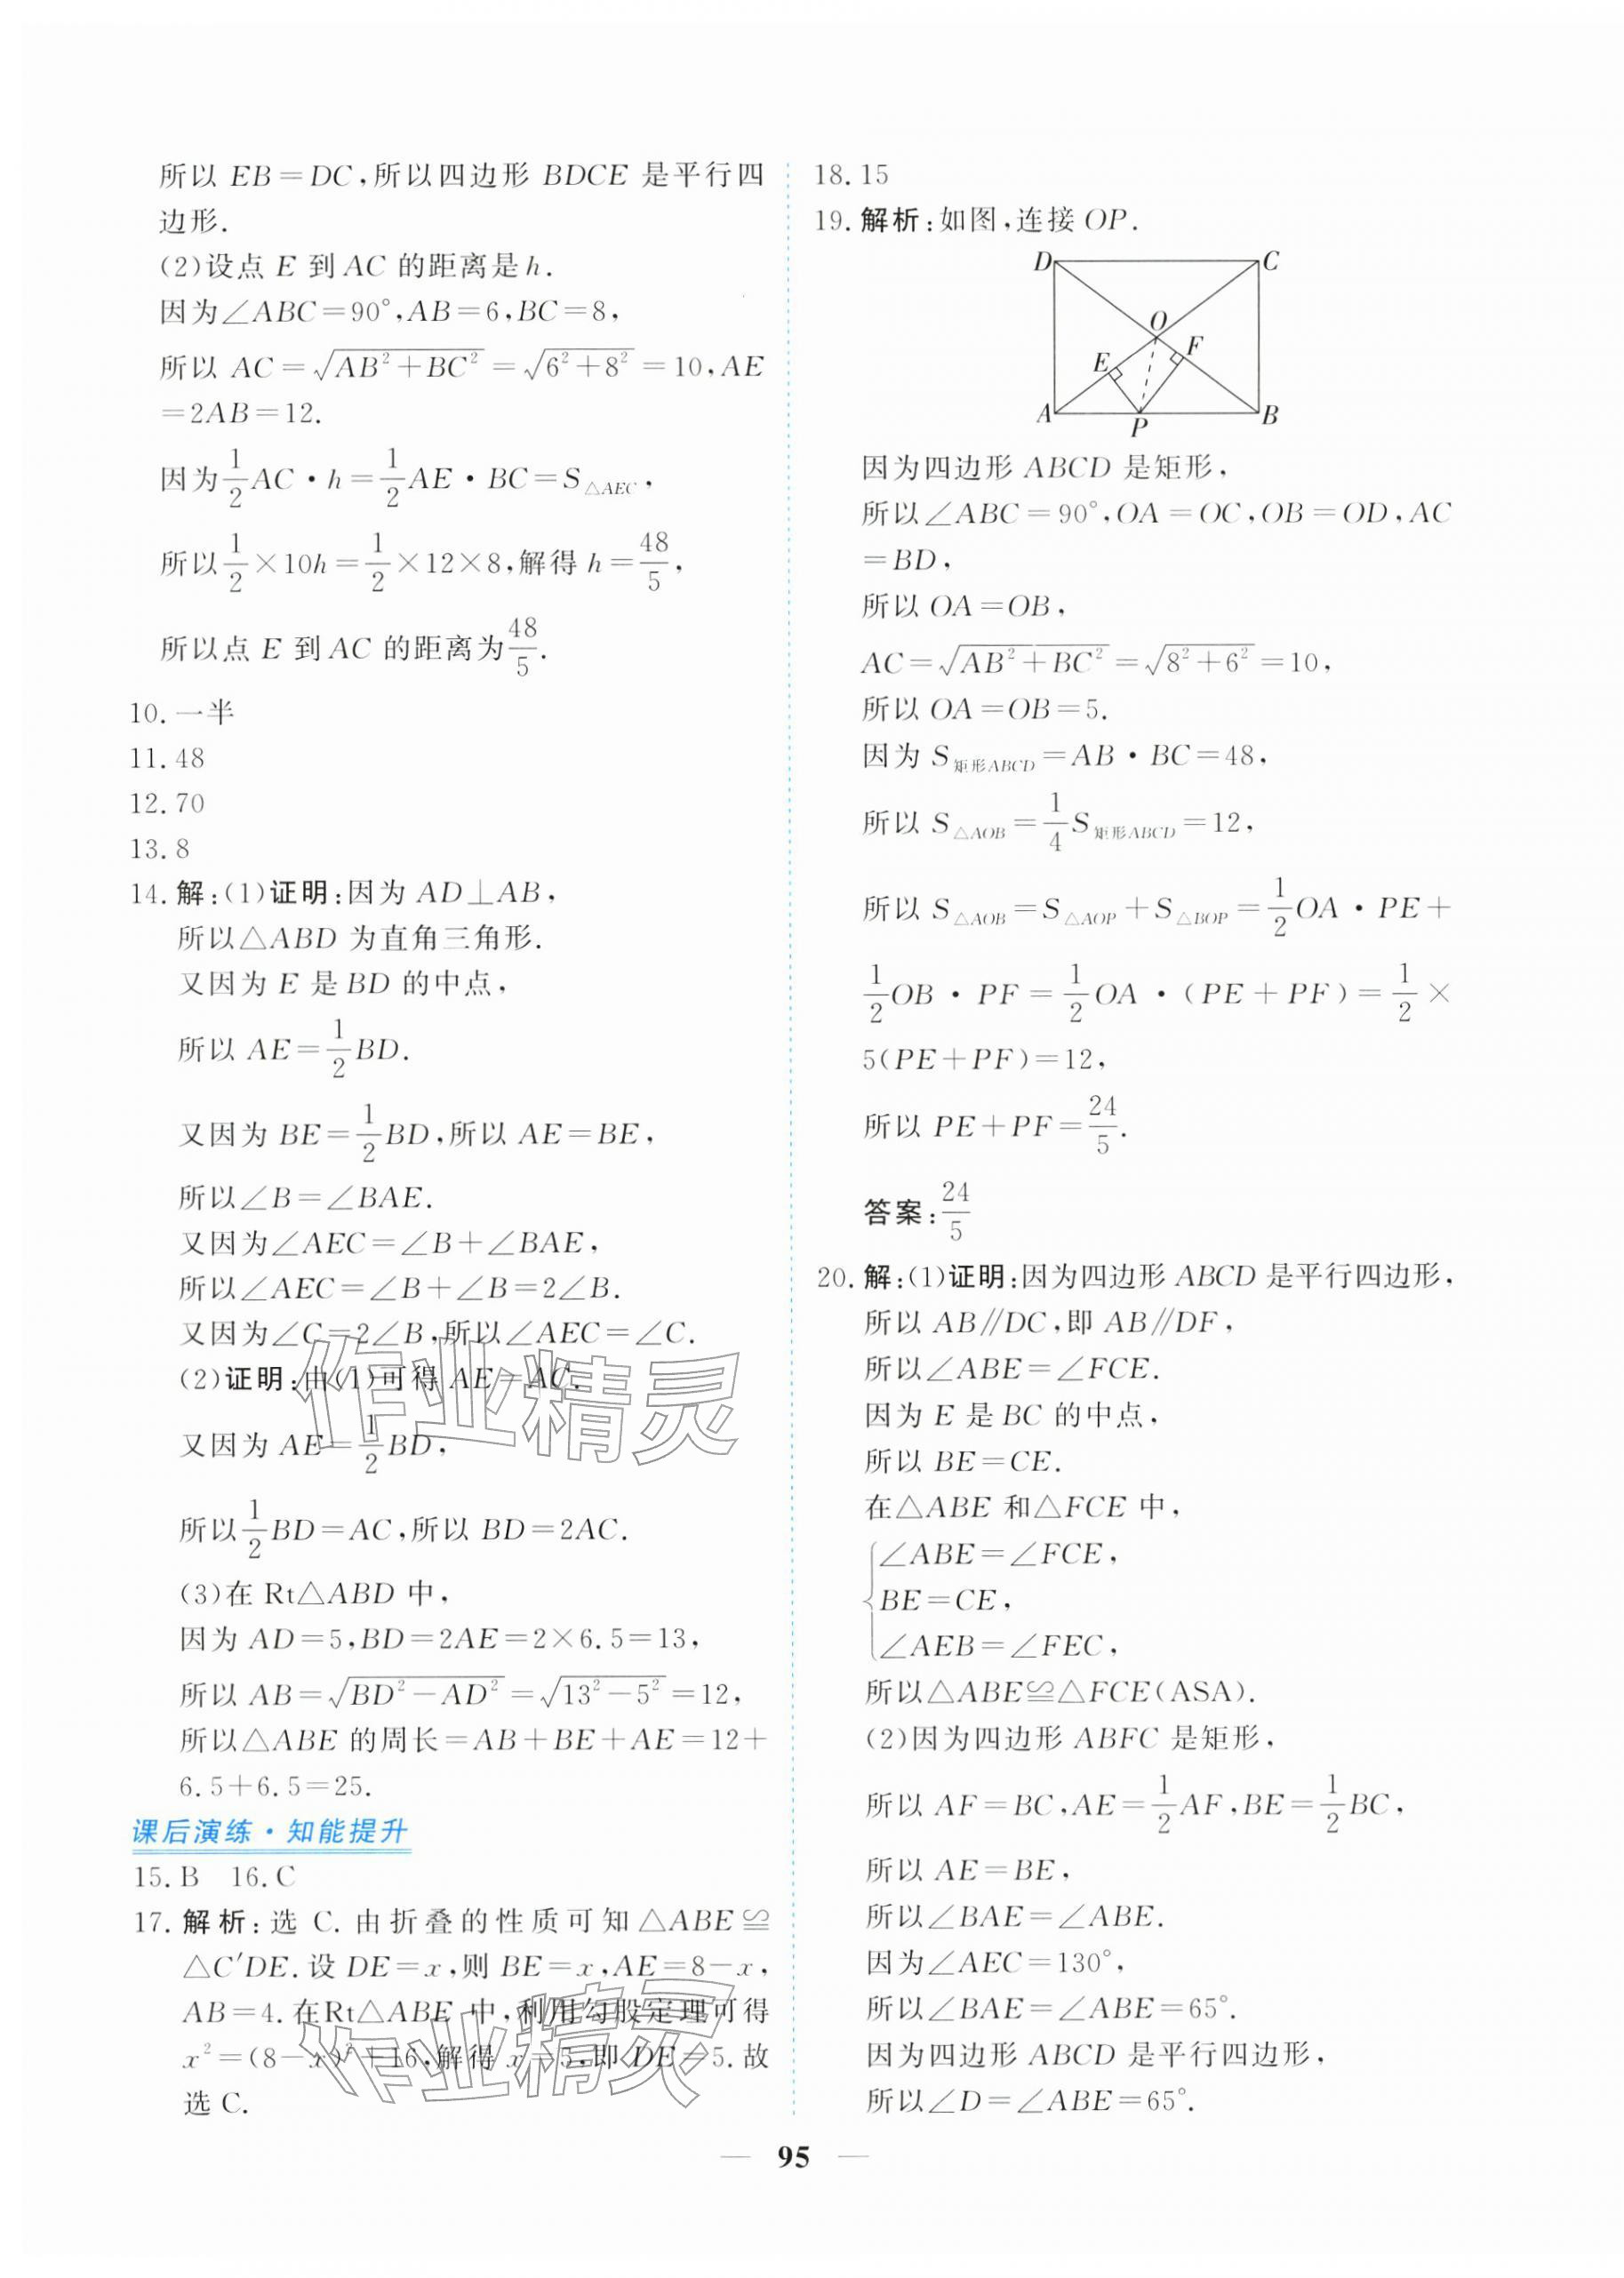 所以 EB=DC,所以四边形 BDCE 是平行四
边形.
(2)设点 E 到 AC 的距离是 h.
因为∠ABC=90°,AB=6,BC=8,
所以 AC=√(AB²+BC²)=√(6²+8²)=10,AE
=2AB=12.
因为1/2AC·h=1/2AE·BC=S△AEC,
所以1/2×10h=1/2×12×8,解得 h=48/5,
所以点 E 到 AC 的距离为48/5.
10.一半
11.48
12.70
13.8
14.解:(1)证明:因为 AD⊥AB,
所以△ABD 为直角三角形.
又因为 E 是 BD 的中点,
所以 AE=1/2BD.
又因为 BE=1/2BD,所以 AE=BE,
所以∠B=∠BAE.
又因为∠AEC=∠B+∠BAE,
所以∠AEC=∠B+∠B=2∠B.
又因为∠C=2∠B,所以∠AEC=∠C.
(2)证明:由(1)可得 AE=AC.
又因为 AE=1/2BD,
所以1/2BD=AC,所以 BD=2AC.
(3)在 Rt△ABD 中,
因为 AD=5,BD=2AE=2×6.5=13,
所以 AB=√(BD²-AD²)=√(13²-5²)=12,
所以△ABE 的周长=AB+BE+AE=12+
6.5+6.5=25.
课后演练·知能提升
15.B 16.C
17.解析:选 C.由折叠的性质可知△ABE≌
△C′DE.设 DE=x,则 BE=x,AE=8-x,
AB=4.在Rt△ABE 中,利用勾股定理可得
x²=(8-x)²+16,解得 x=5,即 DE=5.故
选 C.
18.15
19.解析:如图,连接 OP.
D
C
O
F
E
A
P
B
因为四边形 ABCD 是矩形,
所以∠ABC=90°,OA=OC,OB=OD,AC
=BD,
所以 OA=OB,
AC=√(AB²+BC²)=√(8²+6²)=10,
所以 OA=OB=5.
因为 S矩形ABCD=AB·BC=48,
所以 S△AOB=1/4S矩形ABCD=12,
所以 S△AOB=S△AOP+S△BOP=1/2OA·PE+
1/2OB·PF=1/2OA·(PE+PF)=1/2×
5(PE+PF)=12,
所以 PE+PF=24/5.
答案:24/5
20.解:(1)证明:因为四边形 ABCD 是平行四边形,
所以 AB∥DC,即 AB∥DF,
所以∠ABE=∠FCE.
因为 E 是 BC 的中点,
所以 BE=CE.
在△ABE 和△FCE 中,
∠ABE=∠FCE,
BE=CE,
∠AEB=∠FEC,
所以△ABE≌△FCE(ASA).
(2)因为四边形 ABFC 是矩形,
所以 AF=BC,AE=1/2AF,BE=1/2BC,
所以 AE=BE,
所以∠BAE=∠ABE.
因为∠AEC=130°,
所以∠BAE=∠ABE=65°.
因为四边形 ABCD 是平行四边形,
所以∠D=∠ABE=65°.
作业精灵
作业精灵
— 95 —